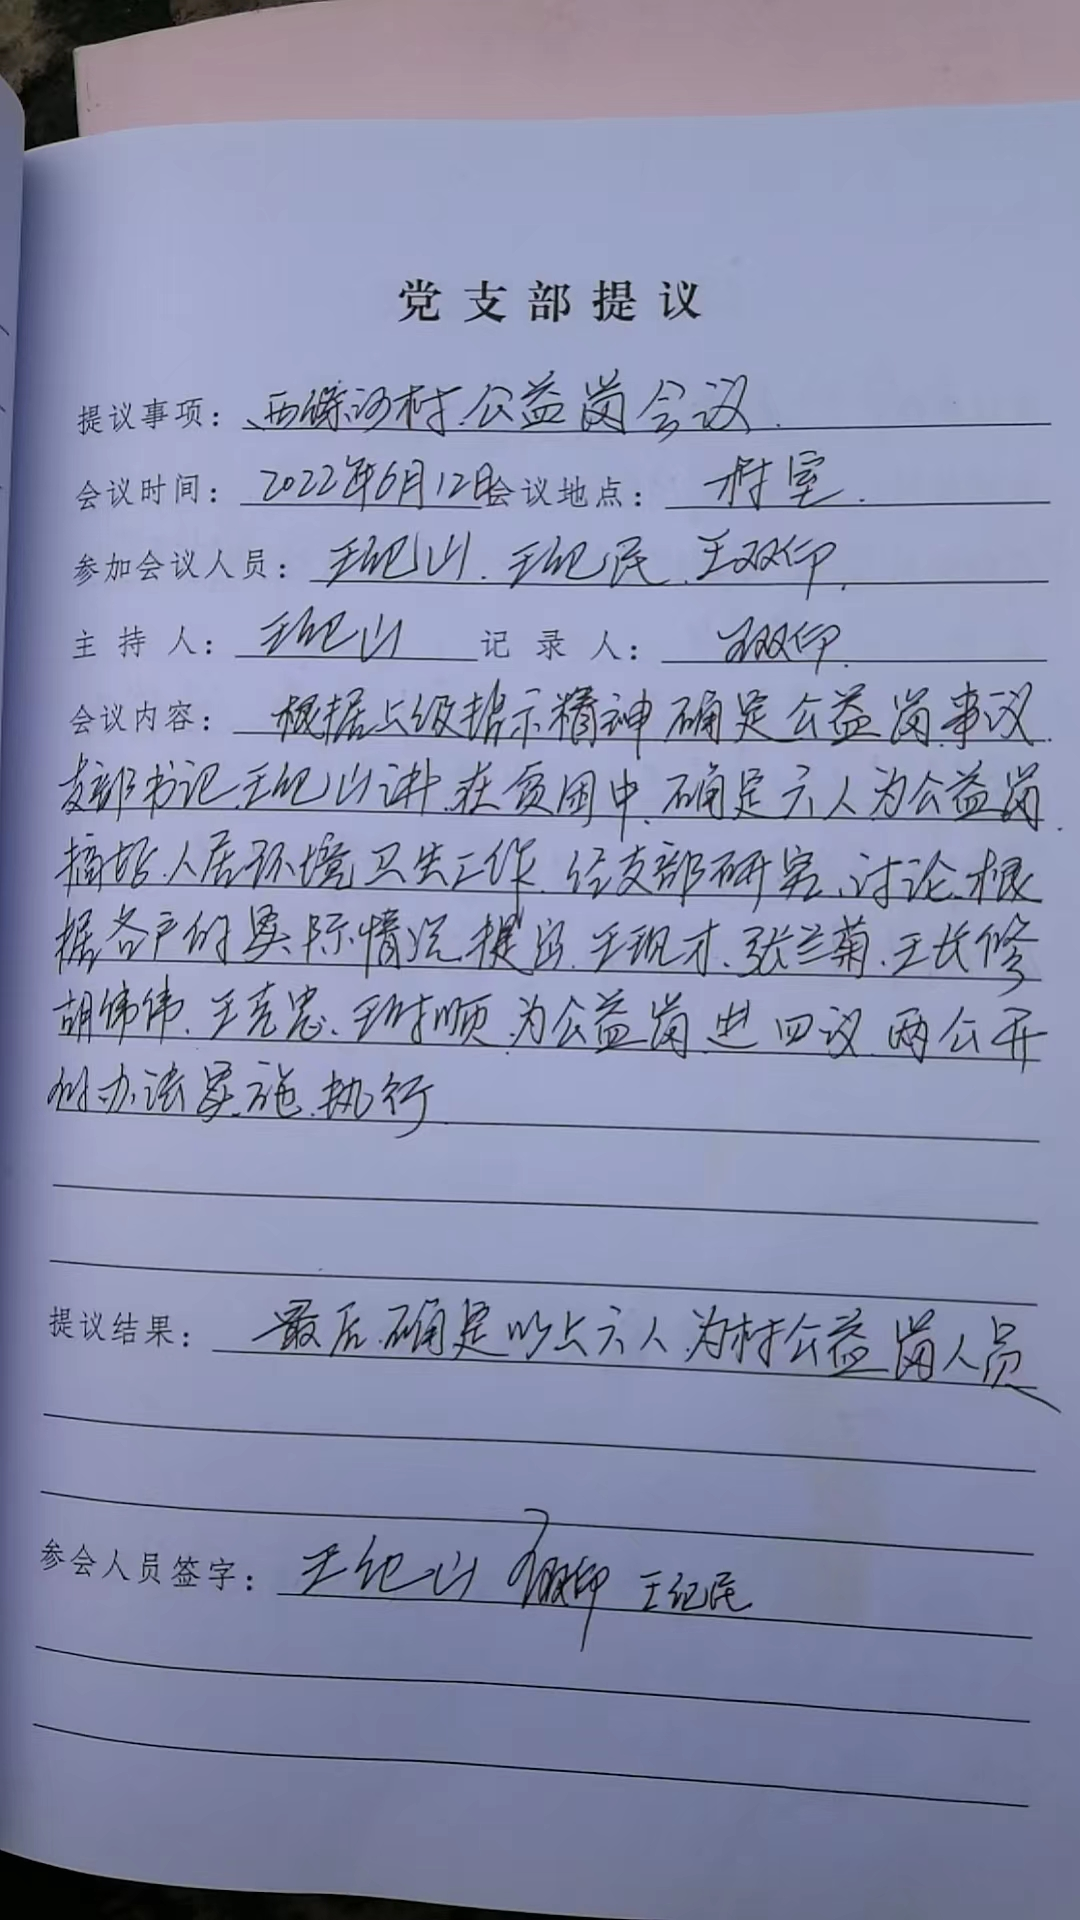 党支部提议
提议事项：西 河村公益岗会议
会议时间：2022年6月12日会议地点：村室
参加会议人员：王纪山、王纪民、王双印
主持人：王纪山 记录人：王双印
会议内容：根据上级指示精神确定公益岗事议
支部书记王纪山讲，在贫困中，确定六人为公益岗
搞好人居环境卫生工作，经支部研究、讨论、根
据各户的实际情况提 王 才、张兰菊、王长修
胡伟伟、王克忠、王 顺，为公益岗 四议两公开
的办法实施执行
提议结果：最后确定以上六人为村公益岗人员
参会人员签字：王纪山 王双印 王纪民